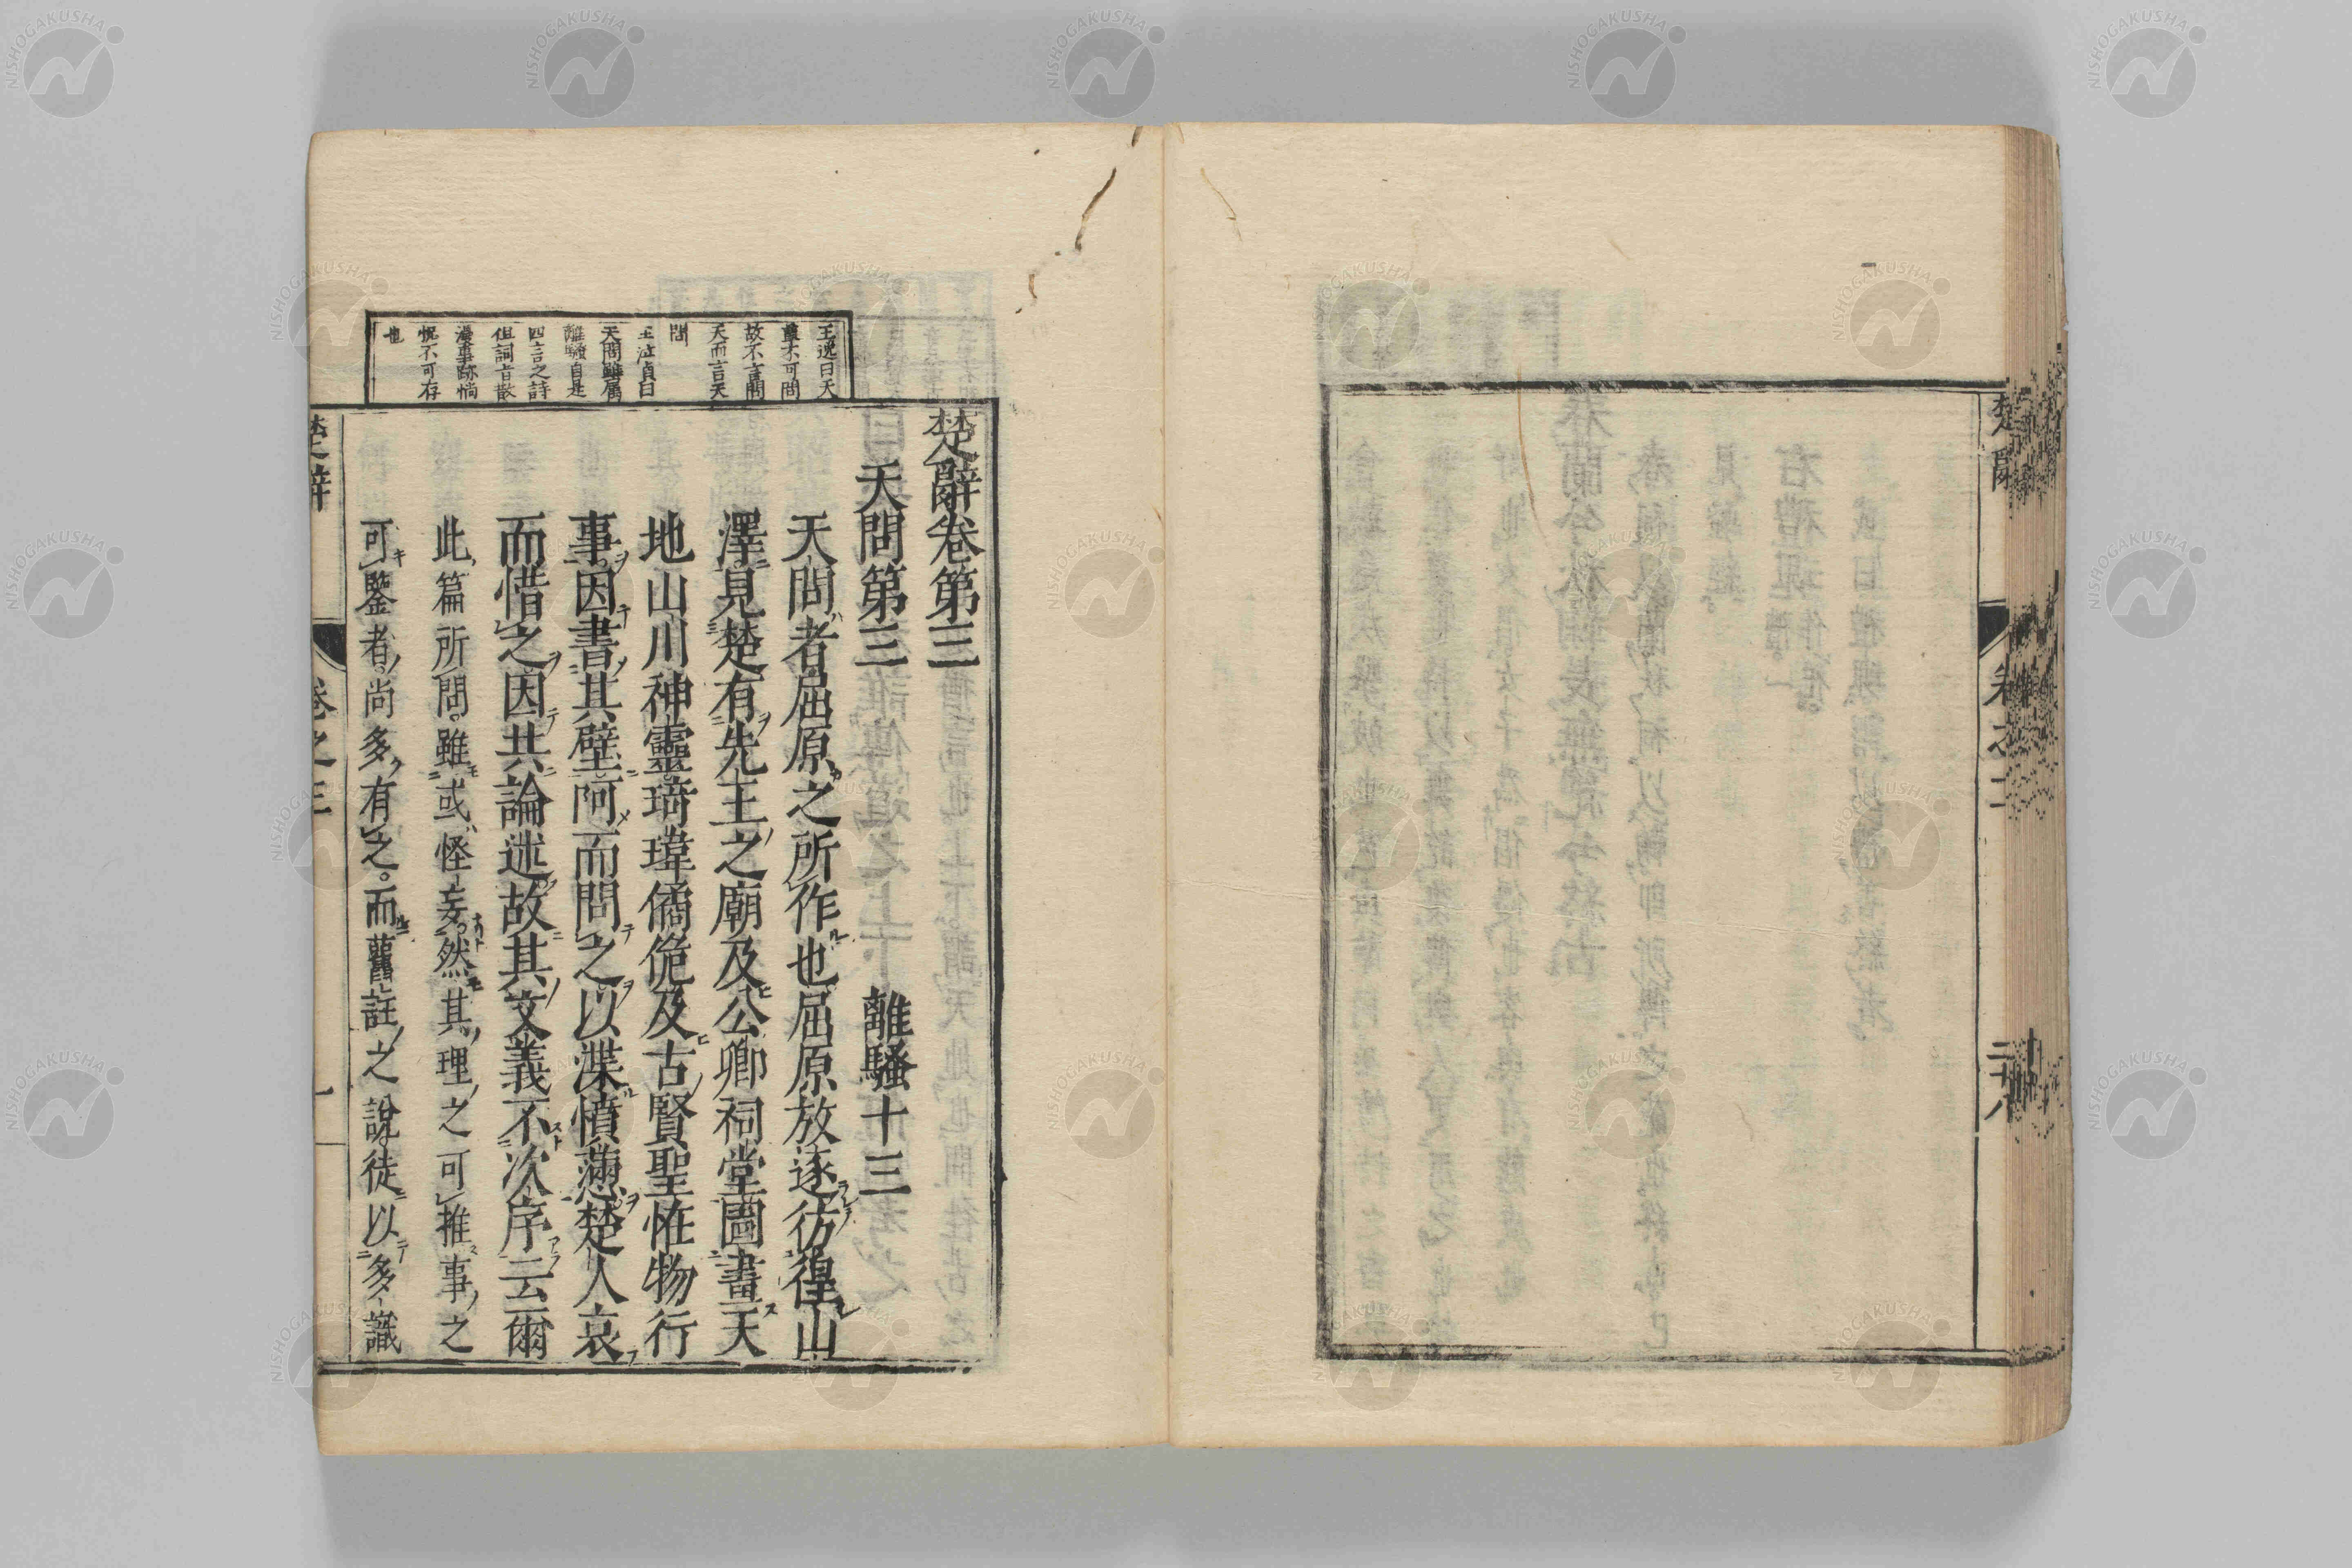 楚辭卷第三
天問第三　離騷十三
天問者屈原之所作也屈原放逐彷徨山
澤見楚有先王之廟及公卿祠堂圖畫天
地山川神靈琦瑋僪佹及古賢聖恠物行
事因書其壁呵而問之以渫憤懣楚人哀
而惜之因共論述故其文義不次序云爾
此篇所問雖或怪妄然其理之可推事之
可鑒者尚多有之而舊註之說徒以多識
王逸曰天
尊不可問
故不言問
天而言天
問
王世貞曰
天問雖屬
離騷自是
四言之詩
但詞旨散
漫事跡惝
怳不可存
也
楚辭
卷之三
一
楚辭
卷之二
二十八
NISHOGAKUSHA